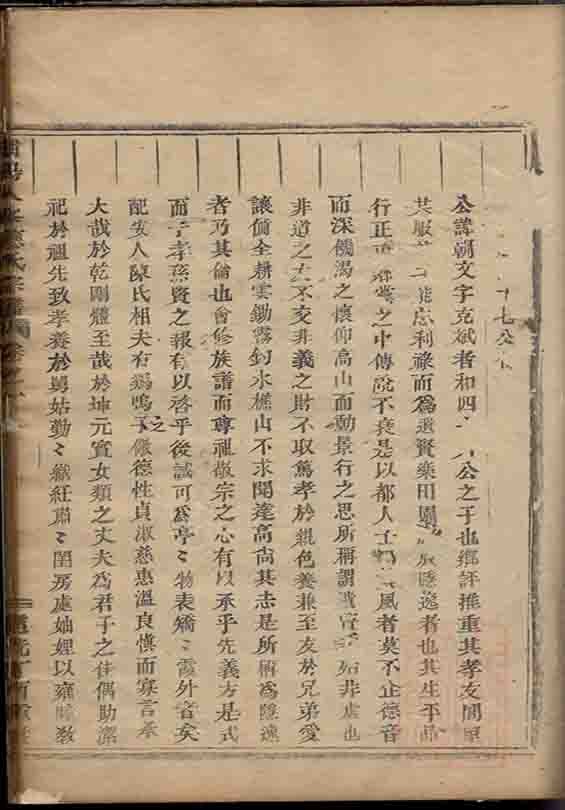 十七公
公諱朝文字克斌者和四公之子也鄉評推重其孝友閭里
共服能忘利祿而爲遺賢樂田園隱逸者也其生平品
行正之中傳說不衰是以都人士風者莫不企德音
而深饑渴之懷仰高山而動景行之思所稱謂非虛也
非道之友不交非義之財不取篤孝於親色養兼至友於兄弟愛
讓備全耕雲鋤霧釣水樵山不求聞達高尚其志是所稱爲隱逸
者乃其倫也會修族譜而尊祖敬宗之心有以承乎先義方是式
而子孝孫賢之報有以啓乎後誠可爲亭〻物表矯〻霞外者矣
配安人陳氏相夫有鷄鳴之儆德性貞淑慈惠溫良愼而寡言承
大哉於乾剛體至哉於坤元實女類之丈夫爲君子之佳偶助潔
祀於祖先致孝養於舅姑勤〻織紝肅〻閨房處妯娌以雍睦敎
氏宗譜